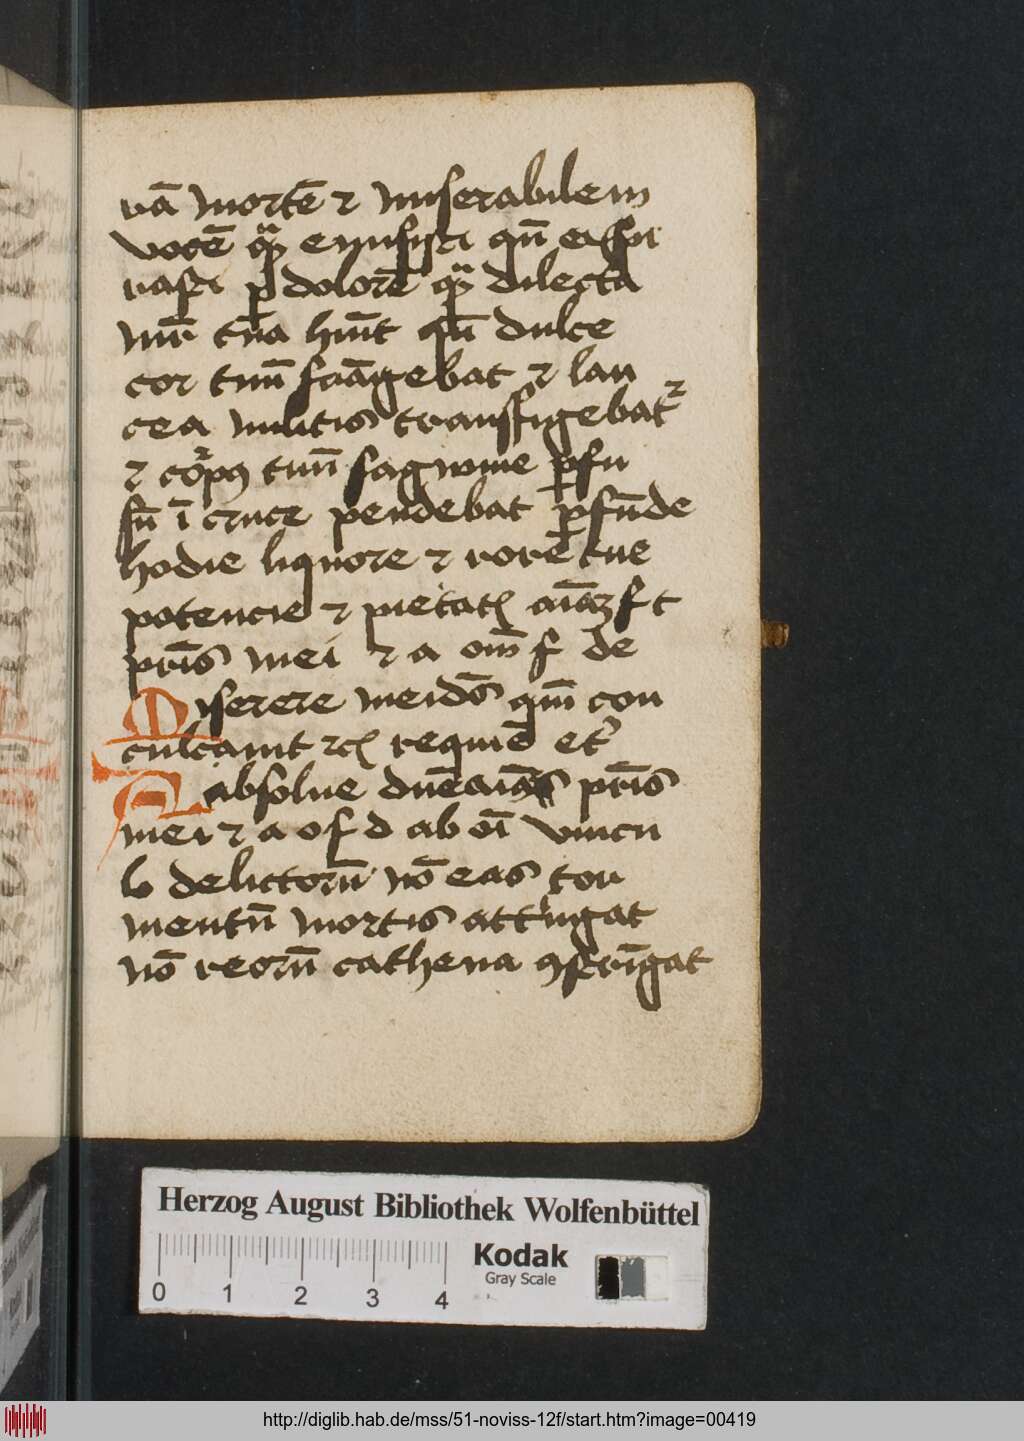 rā mortē ⁊ miserabilem
vocē quā emisisti qn̄ ex spi
rasti p dolorē quā dilecta
mr̄ tua hūit qn̄ dulce
cor tuū frāgebat ⁊ lan
cea militis transfigebatr
⁊ corpus tuū sagwine pfu
sū ī cruce pendebat pfūde
hodie liquore ⁊ rore tue
potencie ⁊ pietatis aīaꝫ f t
pris mei ⁊ a om̄ f de
Miserere mei dō qm̄ con
culcauit ⁊c requiē et
Absolue dn̄e aīas pris
mei ⁊ a o f d ab oī vincu
lo delictorū nō eas tor
mentū mortis attingat
nō reorū cathena ꝯstrīgat
Herzog August Bibliothek Wolfenbüttel
Kodak
Gray Scale
0 1 2 3 4
http://diglib.hab.de/mss/51-noviss-12f/start.htm?image=00419